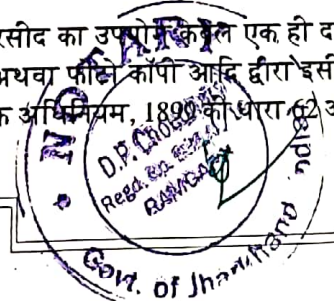 रसीद का उपयोग केवल एक ही द
अथवा फोटो कॉपी आदि द्वारा इसी
क अधिनियम, 1899 की धारा 62 अ
NOTARY
D.P.
Regd. No.
RAMGARH
Govt. of Jharkhand